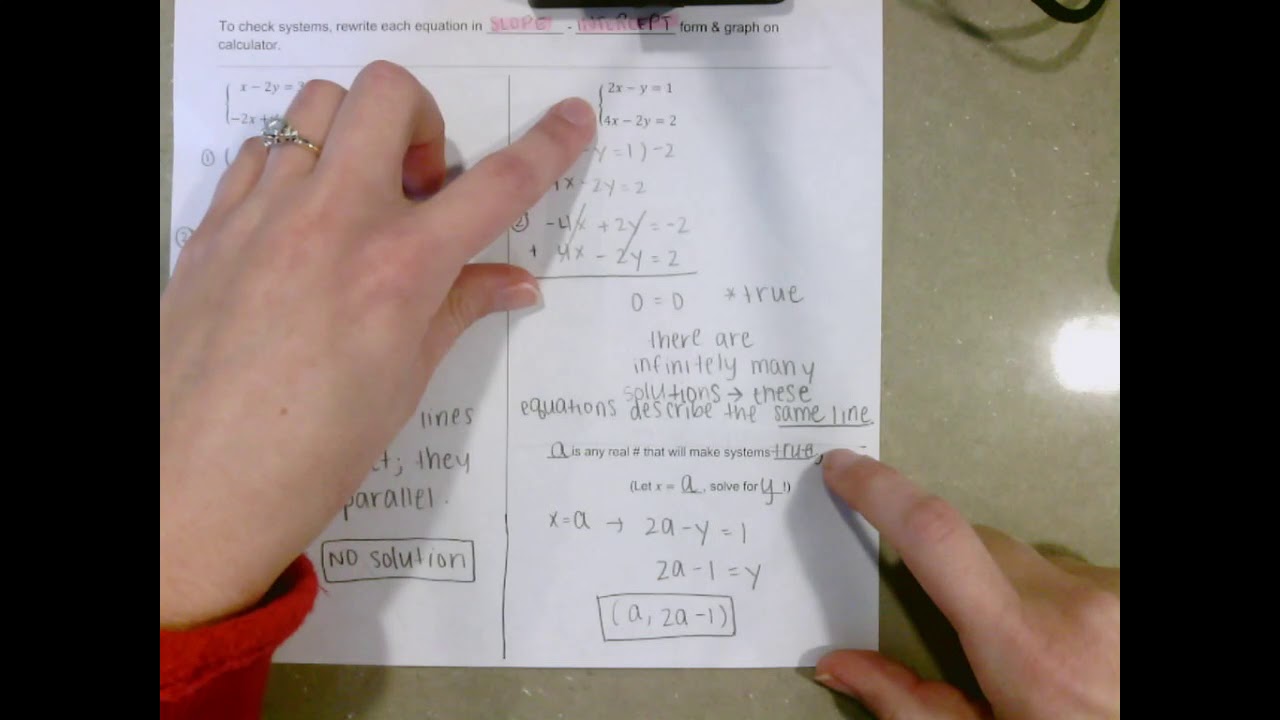 To check systems, rewrite each equation in SLOPE - INTERCEPT form & graph on
calculator.
x − 2y = 3
−2x +
①(
②
lines
they
parallel.
NO solution
2x − y = 1
4x − 2y = 2
y = 1) -2
4x - 2y = 2
② -4x + 2y = -2
+ 4x - 2y = 2
0 = 0 *true
there are
infinitely many
solutions → these
equations describe the same line.
a is any real # that will make systems true,
(Let x = a, solve for y!)
x = a → 2a - y = 1
2a - 1 = y
(a, 2a - 1)